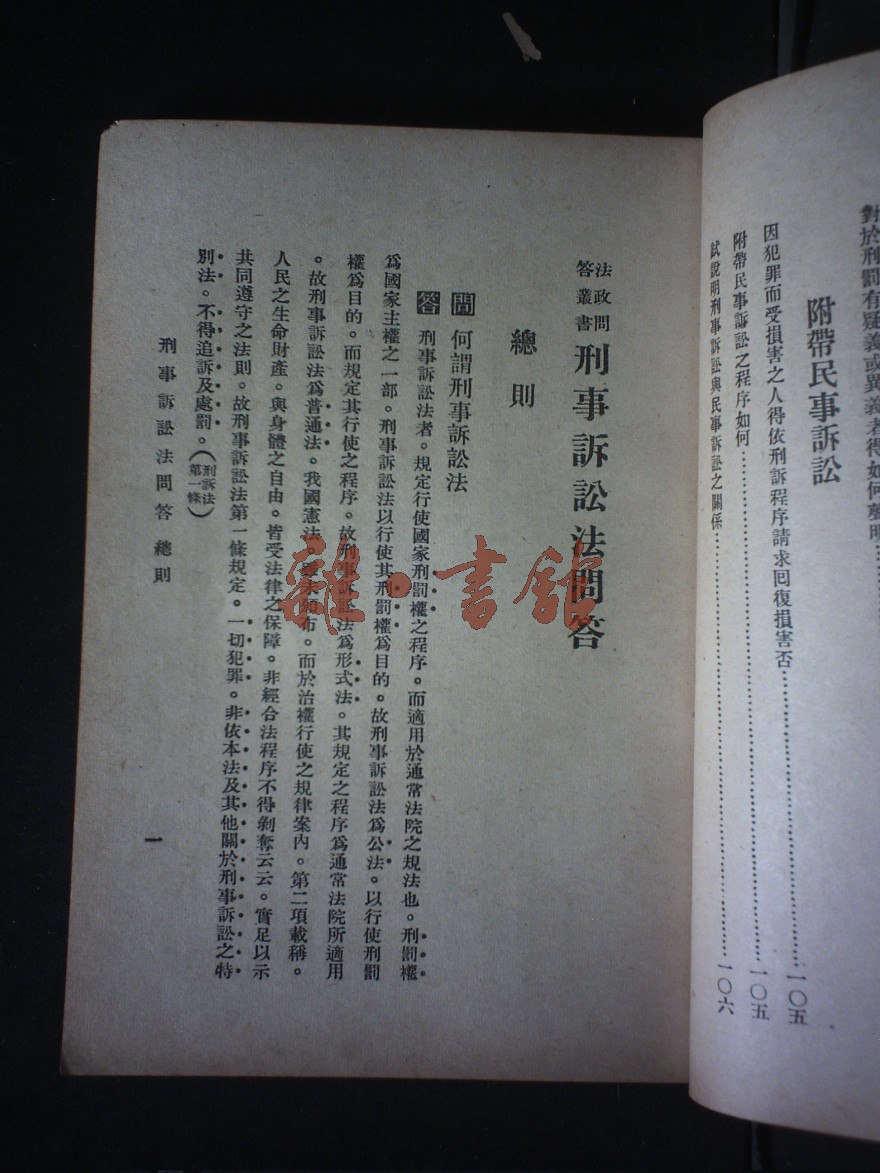 對於刑罰有疑義或異義者得如何聲明
附帶民事訴訟
因犯罪而受損害之人得依刑訴程序請求回復損害否……一〇五
附帶民事訴訟之程序如何……一〇五
試說明刑事訴訟與民事訴訟之關係……一〇六
法政問答叢書
刑事訴訟法問答
總則
問 何謂刑事訴訟法
答 刑事訴訟法者。規定行使國家刑罰權之程序。而適用於通常法院之規法也。刑罰權
爲國家主權之一部。刑事訴訟法以行使其刑罰權爲目的。故刑事訴訟法爲公法。以行使刑罰
權爲目的。而規定其行使之程序。故刑事訴訟法爲形式法。其規定之程序爲通常法院所適用
。故刑事訴訟法爲普通法。我國憲法。雖未頒布。而於治權行使之規律案內。第二項載稱。
人民之生命財產。與身體之自由。皆受法律之保障。非經合法程序不得剝奪云云。實足以示
共同遵守之法則。故刑事訴訟法第一條規定。一切犯罪。非依本法及其他關於刑事訴訟之特
別法。不得追訴及處罰。（刑訴法第一條）
刑事訴訟法問答 總則
一
書館